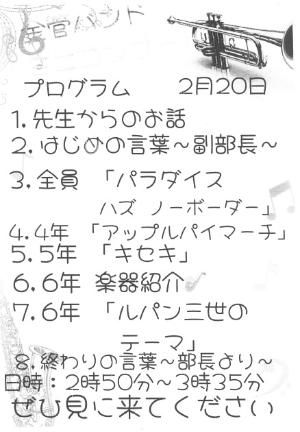 金官バンド
プログラム　　2月20日
1.先生からのお話
2.はじめの言葉～副部長～
3.全員　「パラダイス
ハズ ノーボーダー」
4.4年　「アップルパイマーチ」
5.5年　「キセキ」
6.6年　楽器紹介
7.6年　「ルパン三世の
テーマ」
8.終わりの言葉～部長より～
日時：2時50分～3時35分
ぜひ見に来てください